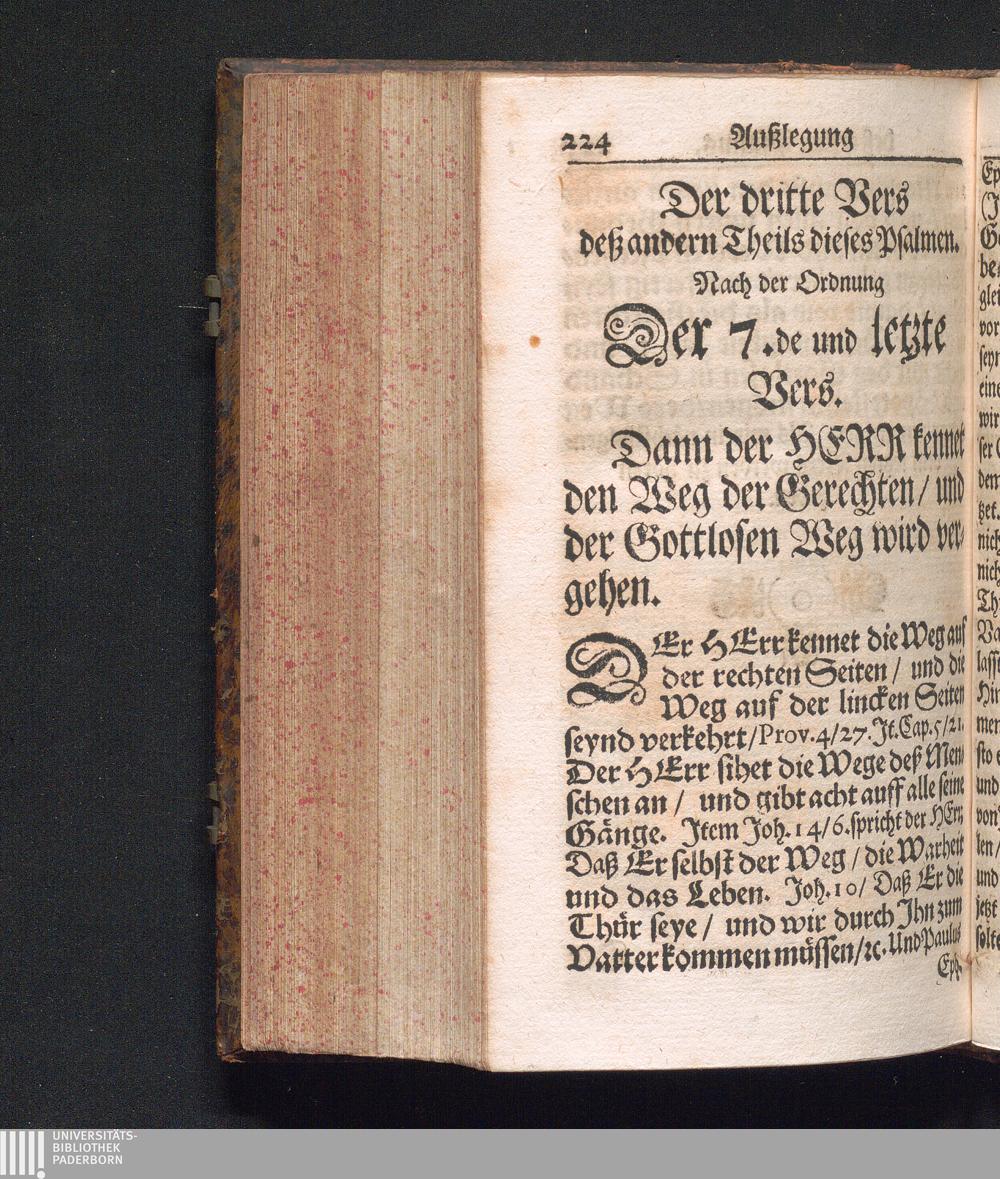 224 Außlegung
Der dritte Vers
deß andern Theils dieses Psalmen.
Nach der Ordnung
Der 7.de und letzte
Vers.
Dann der HERR kennet
den Weg der Gerechten/ und
der Gottlosen Weg wird ver-
gehen.
DEr HErr kennet die Weg auf
der rechten Seiten/ und die
Weg auf der lincken Seiten
seynd verkehrt/ Prov. 4/27. It. Cap. 5/21.
Der HErr sihet die Wege deß Men-
schen an/ und gibt acht auff alle seine
Gänge. Item Joh. 14/6. spricht der HErr,
Daß Er selbst der Weg/ die Warheit
und das Leben. Joh. 10/ Daß Er die
Thür seye/ und wir durch Ihn zum
Vatter kommen müssen/ ꝛc. Und Paulus
Eph.
UNIVERSITÄTS-
BIBLIOTHEK
PADERBORN